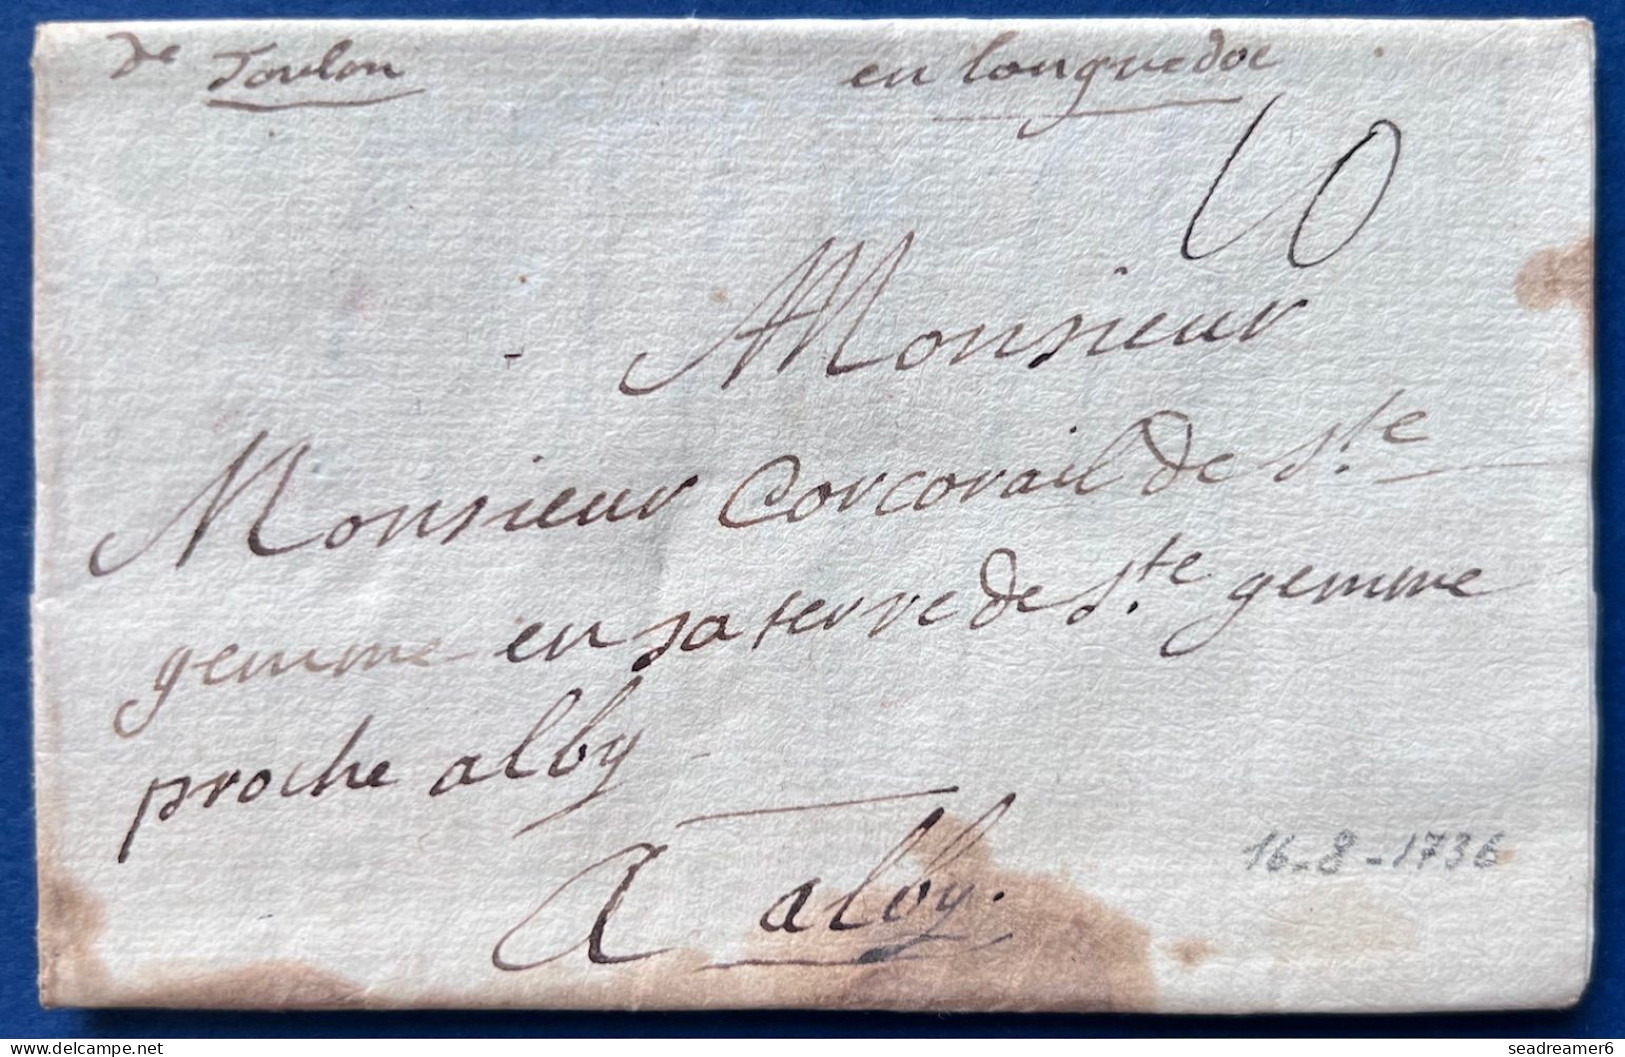 De Toulon en Longuedoc
10
Monsieur
Monsieur Corcorail de Ste
gemme en sa terre de Ste gemme
proche alby
A alby.
16-8-1736
© seadreamer6